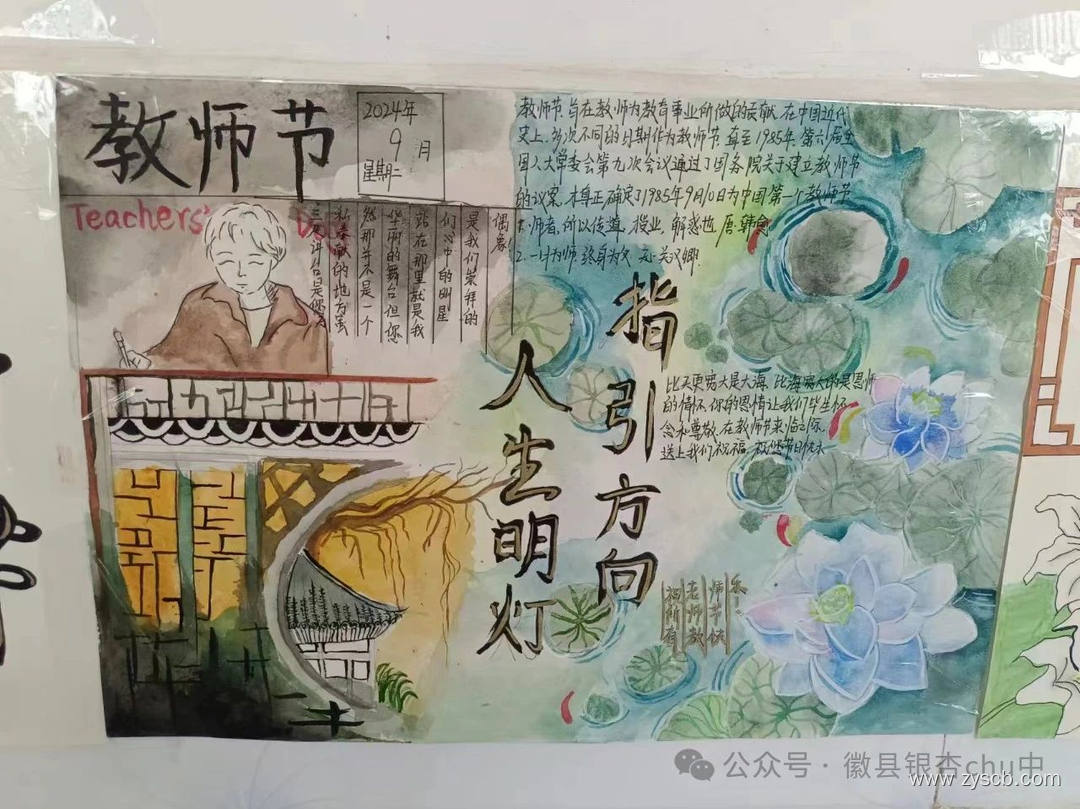 教师节
2024年
9月
星期二
Teachers'
教师节,旨在教师为教育事业所做的贡献.在中国近代
史上,多次不同的日期作为教师节.直至1985年,第六届全
国人大常委会第九次会议通过了国务院关于建立教师节
的议案,才真正确定了1985年9月10日为中国第一个教师节
1.师者,所以传道,授业,解惑也.唐.韩愈
2.一日为师,终身为父.元.关汉卿.
三尺讲台是您
私奉献的地方虽
然那并不是一个
华丽的舞台但您
站在那里就是我
们心中的明星
是我们崇拜的
偶像
指引方向
人生明灯
比天更宽大是大海,比海宽大的是恩师
的情怀.你的恩情让我们毕生怀
念和尊敬.在教师节来临之际,
送上我们祝福,祝您节日快乐
祝所有
老师教
师节快
乐!
公众号·徽县银杏chu中
www.zyscb.com